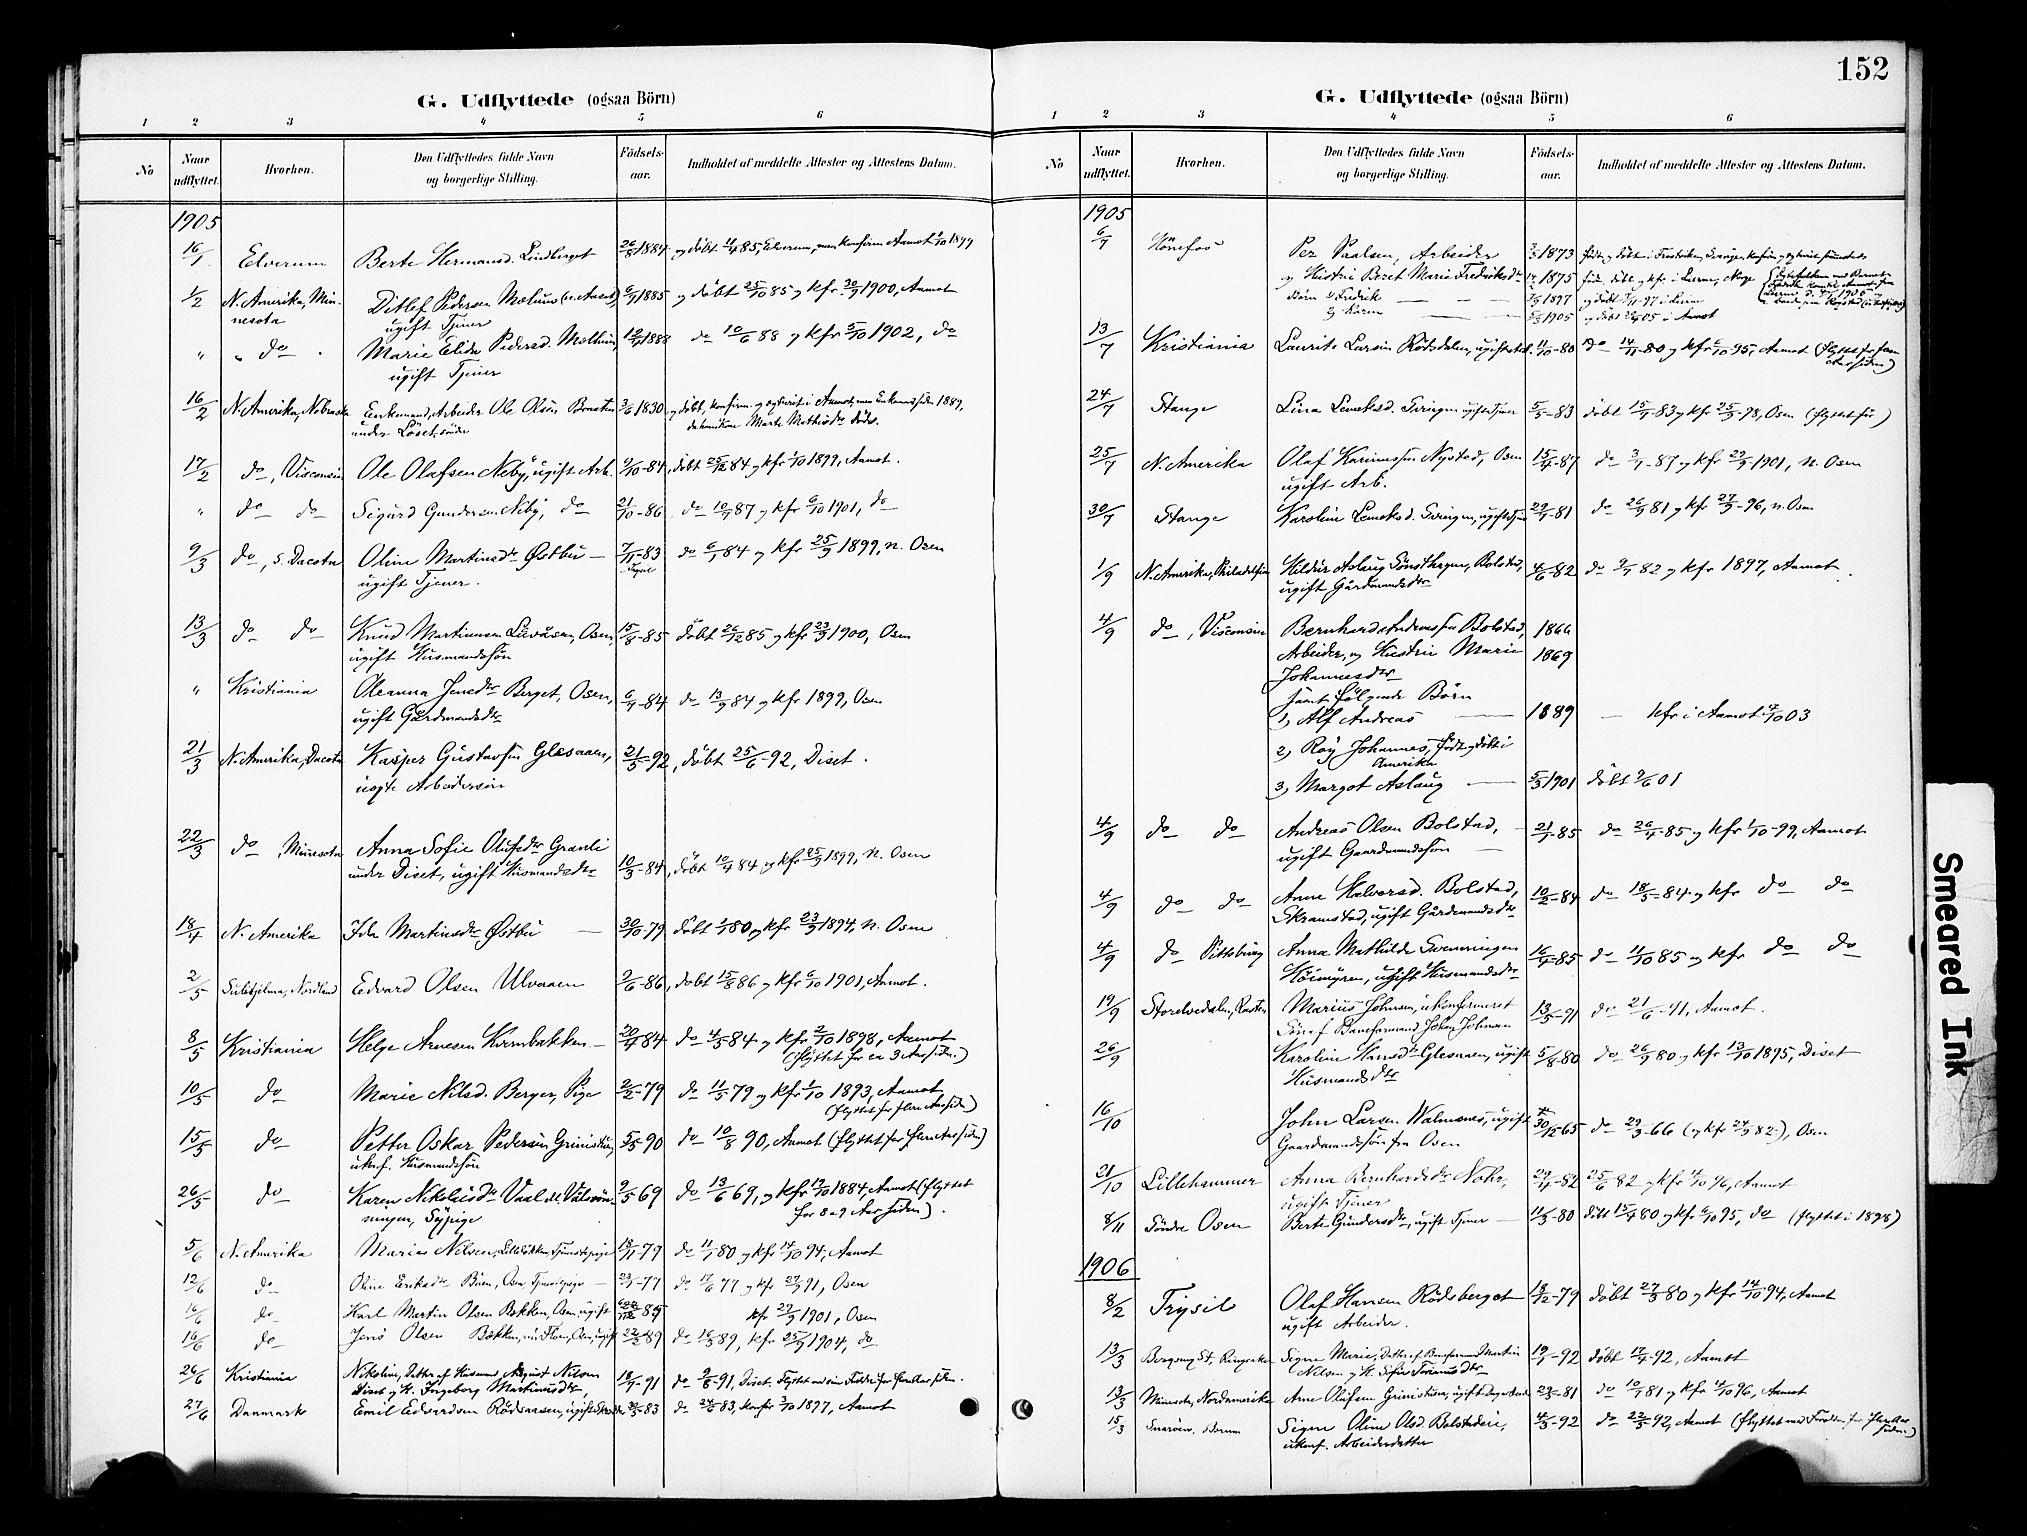 152
G. Udflyttede (ogsaa Börn)
1 2 3 4 5 6
No
Naar udflyttet.
Hvorhen.
Den Udflyttedes fulde Navn og borgerlige Stilling.
Födsels-aar.
Indholdet af meddelte Attester og Attestens Datum.
1905
16/1 Elverum Berte Hermansd. Lindberget 26/8 1884 og döbt 4/4 85, Elverum, men konfirm. Aamot 1/10 1899
1/2 N. Amerika, Min- Ditlef Pedersen Mælum 6/9 1885 og döbt 25/10 85 og kfr. 30/9 1900, Aamot
nesota ugift Tjener
" " do " Marie Elida Pedersd. Mælum, 12/4 1888 do 10/6 88 og kfr 5/10 1902, do
ugift Tjener
16/2 N. Amerika, Nebraska Enkemand, Arbeider Ole Olsen 3/6 1830 og döbt, konfirm. og i Aamot, men Enkemand siden 1889,
under Löset, söndre da Marte Mathisdtr döde.
17/2 do, Visconsin Ole Olafsen Neby, ugift Arb. 9/10-84, döbt 25/12 84 og kfr 1/10 1899, Aamot.
" do do Sigurd Gundersen Neby, do 21/10-86 do 10/4 87 og kfr 6/10 1901, do
9/3 do, S. Dacota Oline Martinsdtr Østbu — 7/11-83 do 6/1 84 og kfr 25/9 1899, n. Osen
ugift Tjener. Trysil
13/3 do do Knud Martinsen Osen, 15/8-85 döbt 26/12 85 og kfr 23/9 1900, Osen
ugift Husmandssön
" Kristiania Oleanna Jensdtr Berget, Osen, 6/7-84 do 13/9 84 og kfr 1899, Osen
ugift Gårdmandsdtr
21/3 N. Amerika, Dacota Kasper Gustavsen Glesaaen, 21/5-92, döbt 25/6-92, Diset.
Arbeidersön
22/3 do, Minnesota Anna Sofie Olufsdtr Granli
under Diset, ugift Husmandsdtr 10/3-84, döbt 10/4 84 og kfr 25/9 1899, N. Osen
18/4 N. Amerika Ida Martinsdtr Østbu — 30/10-79 döbt 1/1 80 og kfr 23/9 1894, N. Osen
2/5 Sulitjelma, Nordland Edvard Olsen Ulvaaen 2/6-86, döbt 15/8 86 og kfr 6/10 1901, Aamot.
8/5 Kristiania Helge Arnesen Kvernbakken — 20/4 84 do 4/5 84 og kfr 2/10 1898, Aamot
(flyttet for ca 3 Aar siden.)
10/5 do Marie Nilsd. Berger, Pige 2/2-79 do 11/5 79 og kfr 1/10 1893, Aamot
(flyttet for flere Aar siden)
15/5 do Petter Oskar Pedersen 5/5 90 do 10/8 90, Aamot (flyttet for flere Aar siden)
ukonf. Husmandssön
26/5 do Karen Nikolaisdtr 2/5 69 do 13/6 69, og kfr 19/10 1884, Aamot (flyttet
Sypige for 8 a 9 Aar siden).
5/6 N. Amerika Marie Nilsen, Tjenestepige 18/11 79 do 11/1 80 og kfr 14/10 94, Aamot
12/6 do Oline Eriksdtr Osen, Tjenestepige — 23/1-77 do 17/6 77 og kfr 27/9 91, Osen
16/6 do Karl Martin Olsen Bækken, Osen, ugift 85 kfr 29/9 1901, Osen
16/6 do Jens Olsen Bækken, Osen, ugift 22/2 89 do 16/5 89, kfr. 25/9 1904, do
26/6 Kristiania Nikoline, Datter af Husmd. August Nilsen
Diset og H. Ingeborg Martinusdtr, 18/7-91 do 9/8-91, Diset. Flyttet med sin Fader for flere Aar siden.
27/6 Danmark Emil Edvardsen Rödsaasen, ugift 83 do 24/6 83, konfir 3/10 1897, Aamot
G. Udflyttede (ogsaa Börn)
1 2 3 4 5 6
No
Naar udflyttet.
Hvorhen.
Den Udflyttedes fulde Navn og borgerlige Stilling.
Födsels-aar.
Indholdet af meddelte Attester og Attestens Datum.
1905
6/7 Hönefos Per Paalsen, Arbeider 1873 född og döbt i
og Hustru Beret Marie Fredriksdtr 1875 föd, döbt og kfr. i Norge
Börn 1) Fredrik — 1897 og döbt 97 i
2) Karen — 1905 og döbt 05 i Aamot
13/7 Kristiania Laurits Larsen Rödsdalen, ugift 11/10-80 do 14/11-80 og kfr 6/10 95, Aamot (flyttet for fem
Aar siden)
24/7 Stange Lina Svingen ugift Tjener 5/5-83 döbt 15/7 83 og kfr 25/9-98, Osen (flyttet för)
25/7 N. Amerika Olaf Nystad, Osen 15/4-87 do 3/7-87 og kfr 29/9-1901, N. Osen
ugift Arb.
30/7 Stange Karoline Svingen, ugift Tjener 29/7-81 do 26/9 81 og kfr 27/9-96, n. Osen
1/9 N. Amerika, Philadelfia Hildur Aslaug Bolstad, 4/6-82 do 9/7 82 og kfr 1897, Aamot.
ugift Gårdmandsdtr
4/9 do, Visconsin Bernhard Andreassen Bolstad, 1866
Arbeider, og Hustru Marie 1869
Johannesdtr
samt fölgende Börn
1) Alf Andreas — 1889 — kfr i Aamot 4/10 03
2) Roy Johannes, födt og döbt i
Amerika
3) Margot Aslaug — 5/3 1901 döbt 9/6 01
4/9 do do Andreas Olsen Bolstad, 21/7-85 do 26/7-85 og kfr 1/10-99, Aamot
ugift Gaardmandssön —
4/9 do do Anne Halvorsd. Bolstad, 10/2-84 do 18/5-84 og kfr do do
Skramstad, ugift Gårdmandsdtr
4/9 do Pittsburg Anna Mathilde Svenningsen 16/4-85 do 11/10 85 og kfr do do
ugift Husmandsdtr
19/9 Storelvedalen, Rasten Marius Johnsen, ukonfirmeret 13/5-91 do 21/6-91, Aamot.
Sön af Baneformand Johan Johnsen
26/9 Karoline Hansdtr Glesaaen, ugift 5/8-80 do 26/9 80 og kfr 13/10 1895, Diset
Husmandsdtr
16/10 John Larsen ugift 30/12 65 do 29/3-66 (og kfr 24/9 82), Osen
Gaardmandssön fra Osen
21/10 Lillehammer Anna Bernhardsdtr Nohr, 29/4-82 25/6 82 og kfr 4/10 96, Aamot
ugift Tjener
8/11 Söndre Osen Berte Gundersdtr, ugift Tjener — 11/3-80 ditt 15/4 80 og kfr 6/10 95, do (flyttet i 1898)
1906
8/2 Trysil Olaf Hansen Rödsberget 18/12-79 döbt 27/3 80 og kfr 14/10 94, Aamot
ugift Arbeider.
13/3 Ringsaker Signe Marie, Datter af Baneformand Martin 19/1-92 döbt 18/4-92, Aamot
Nilsen og H. Sofie
13/3 Minnesota, Nordamerika Arne Olufsen ugift 23/5-81 do 10/7 81 og kfr 4/10 96, Aamot
15/3 Snaröen, Bærum Signe Oline Olsd. 4/3-92 do 22/5-92, Aamot (flyttet med Forældre for flere Aar
ukonf. Arbeiderdatter siden.)
Smeared Ink